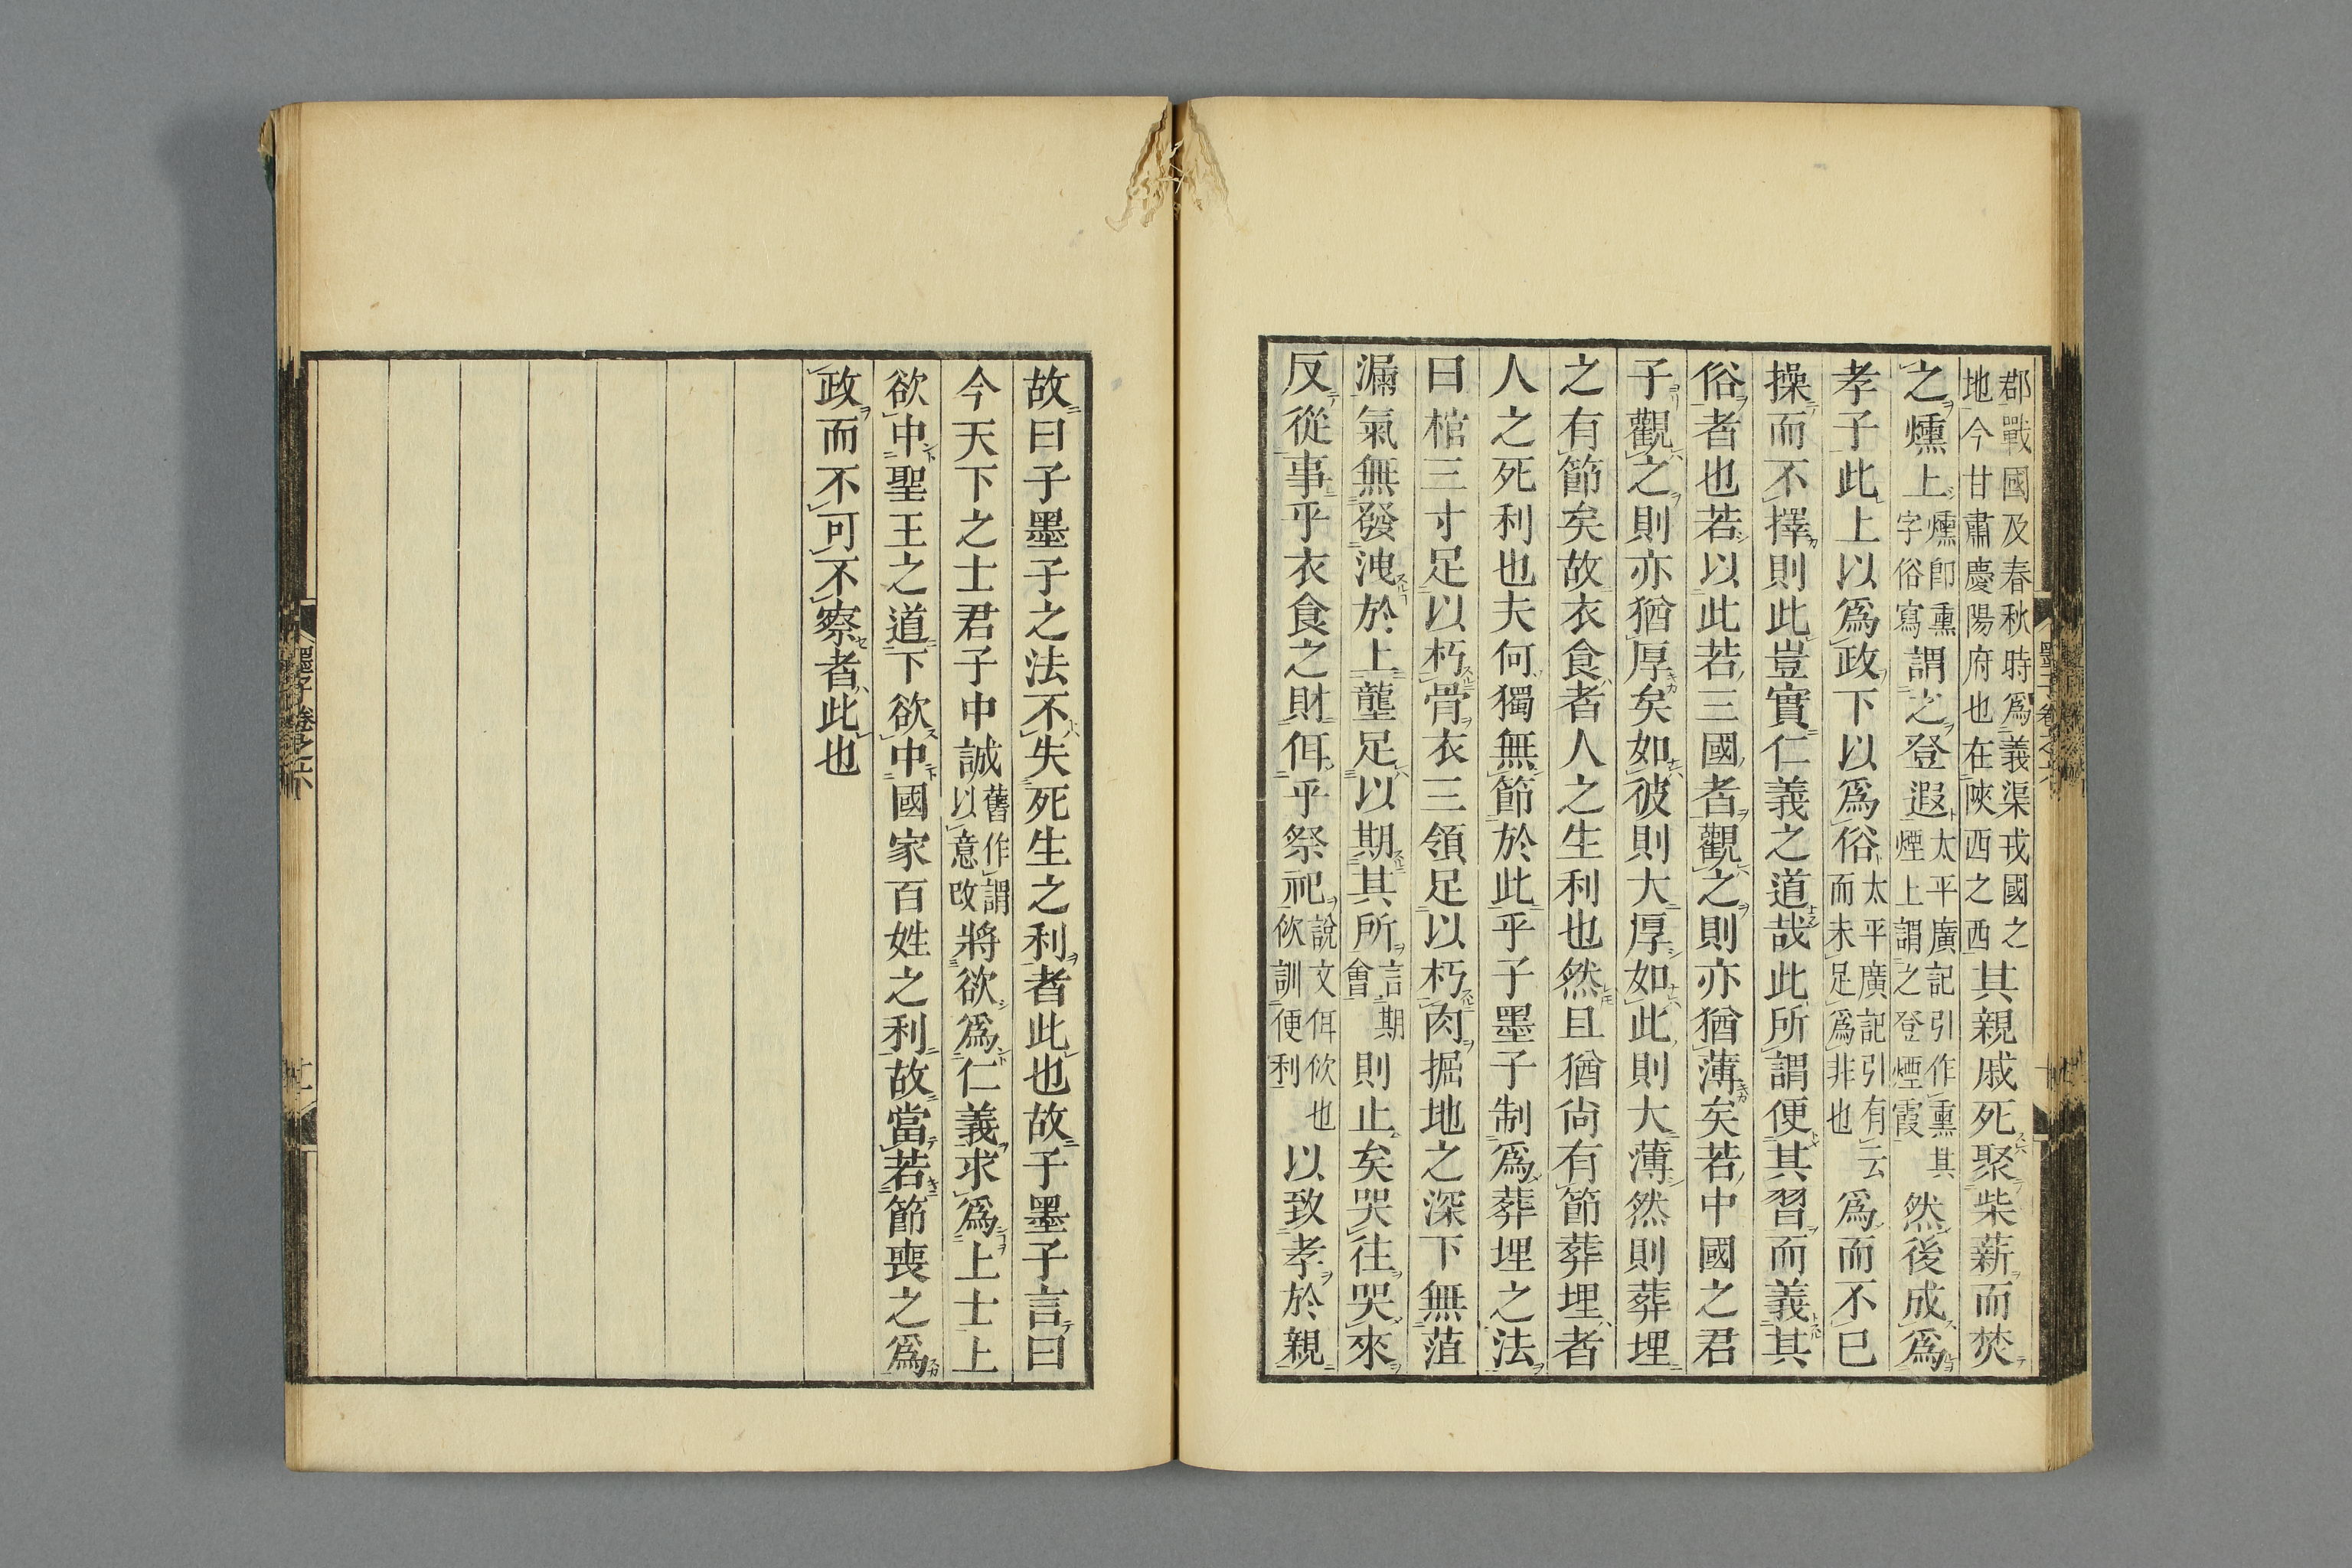 郡戰國及春秋時爲義渠戎國之地今甘肅慶陽府也在陝西之西其親戚死聚柴薪而焚
之燻上燻卽熏字俗寫謂之登遐太平廣記引作熏其煙上謂之登煙霞然後成爲
孝子此上以爲政下以爲俗太平廣記引有云而未足爲非也爲而不已
操而不擇則此豈實仁義之道哉此所謂便其習而義其
俗者也若以此若三國者觀之則亦猶薄矣若中國之君
子觀之則亦猶厚矣如彼則大厚如此則大薄然則葬埋
之有節矣故衣食者人之生利也然且猶尚有節葬埋者
人之死利也夫何獨無節於此乎子墨子制爲葬埋之法
曰棺三寸足以朽骨衣三領足以朽肉掘地之深下無菹
漏氣無發洩於上壟足以期其所言期會則止矣哭往哭來
反從事乎衣食之財佴乎祭祀說文佴佽也佽訓便利以致孝於親
故曰子墨子之法不失死生之利者此也故子墨子言曰
今天下之士君子中誠舊作謂以意改將欲爲仁義求爲上士上
欲中聖王之道下欲中國家百姓之利故當若節喪之爲
政而不可不察者此也
墨子卷之六